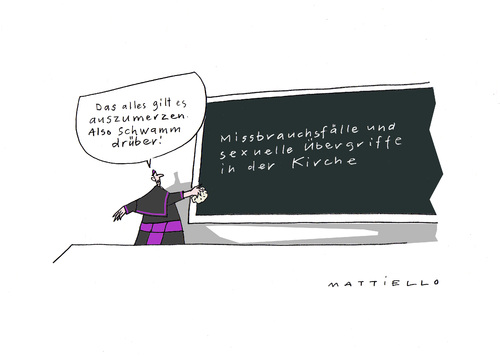 Das alles gilt es
auszumerzen.
Also Schwamm
drüber!
Missbrauchsfälle und
sexuelle Übergriffe
in der Kirche
MATTIELLO